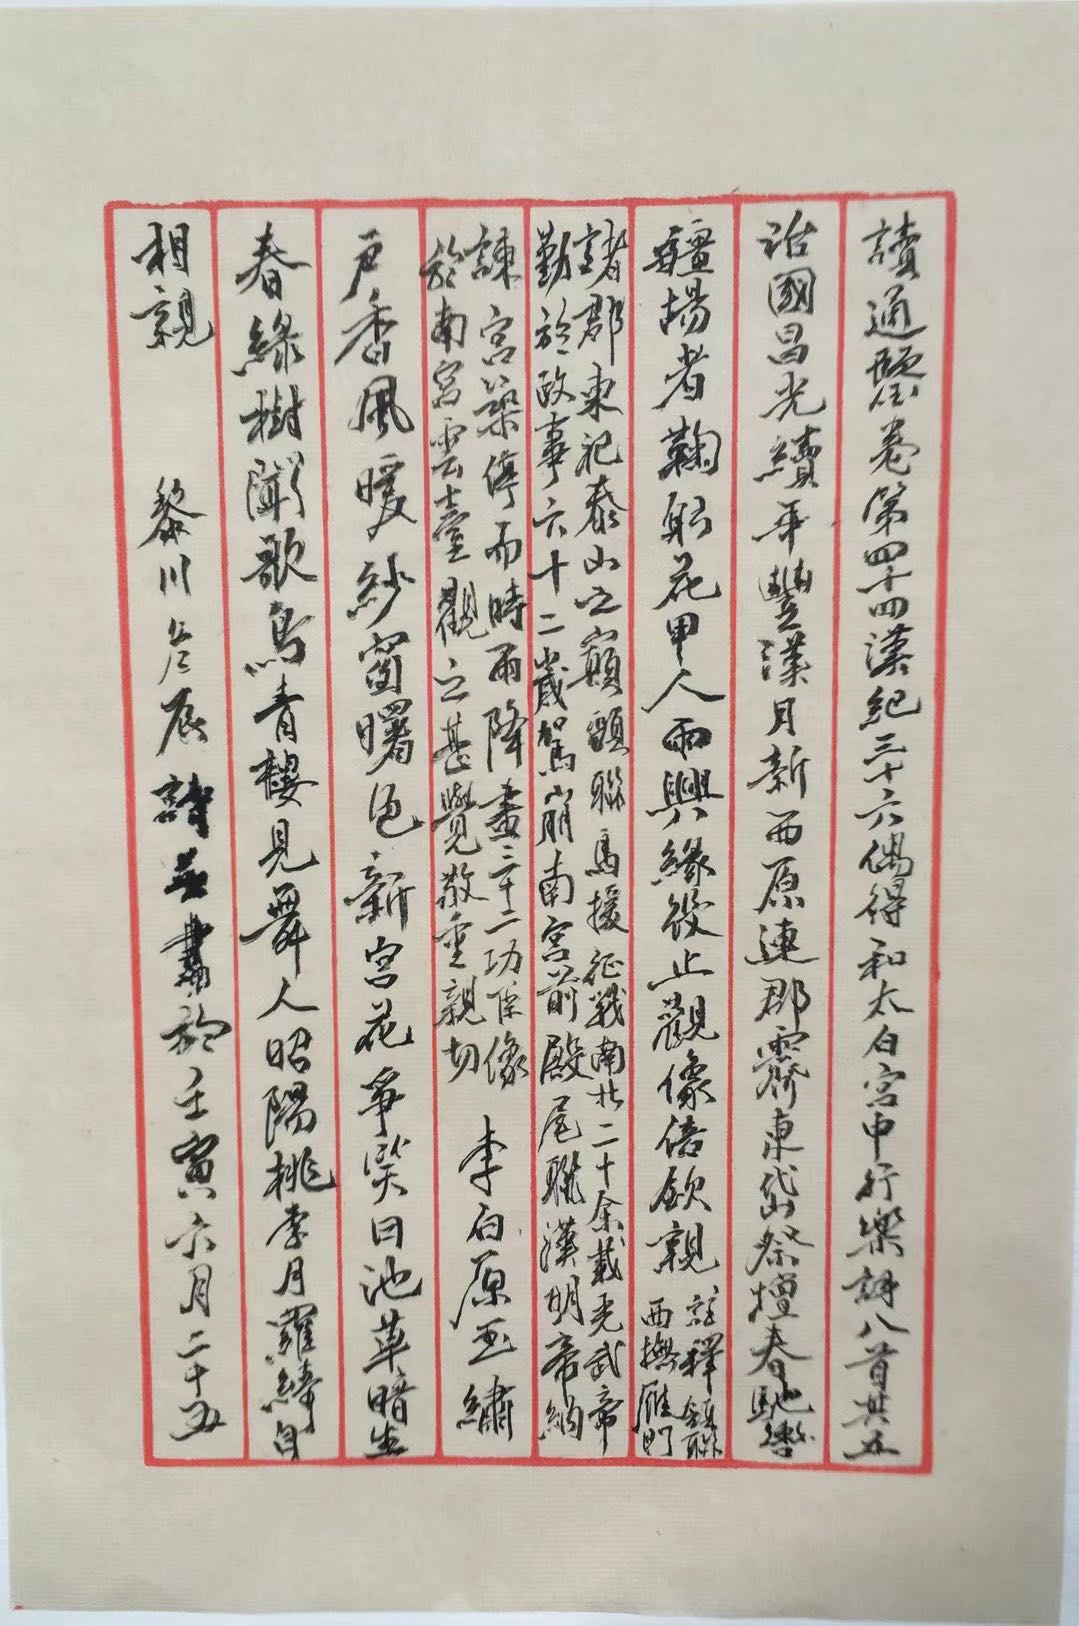 讀通鑒卷第四十四漢紀三十六偶得和太白宮中行樂詩八首其五
治國昌光續年豐漢月新西原連郡霽東岱祭壇春馳轡
疆場者鞠躬花甲人雨興緣役止觀像倍欽親 註釋領聯
西撫雁門
諸郡東祀泰山之巔頸聯馬援征戰南北二十余載光武帝
勤於政事六十二歲駕崩南宮前殿尾聯漢明帝納
諫宮築停而時雨降畫三十二功臣像
於南宮雲臺觀之甚覺敬重親切
李白原玉 繡
戶香風暖紗窗曙色新宮花爭笑日池草暗生
春綠樹聞歌鳥青樓見舞人昭陽桃李月羅綺自
相親 黎川 辰詩並書於壬寅六月二十五